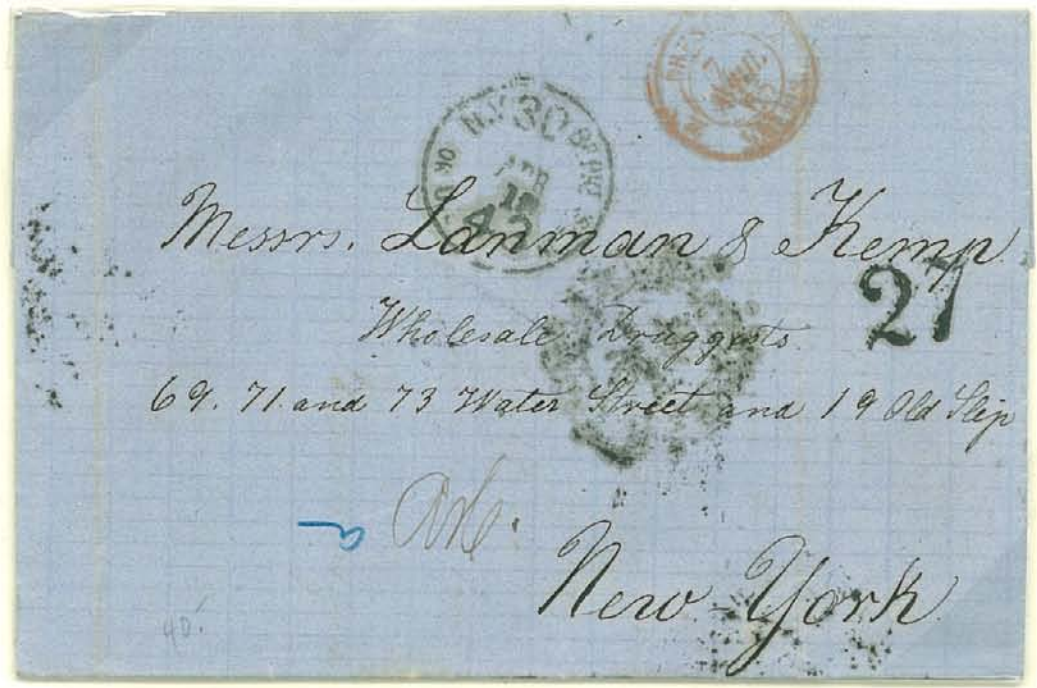 N.Y. 30
OR U
APR
18
42
Messrs. Lanman & Kemp
27
Wholesale Druggists
69. 71. and 73 Water Street and 19 Old Slip
New York
40.